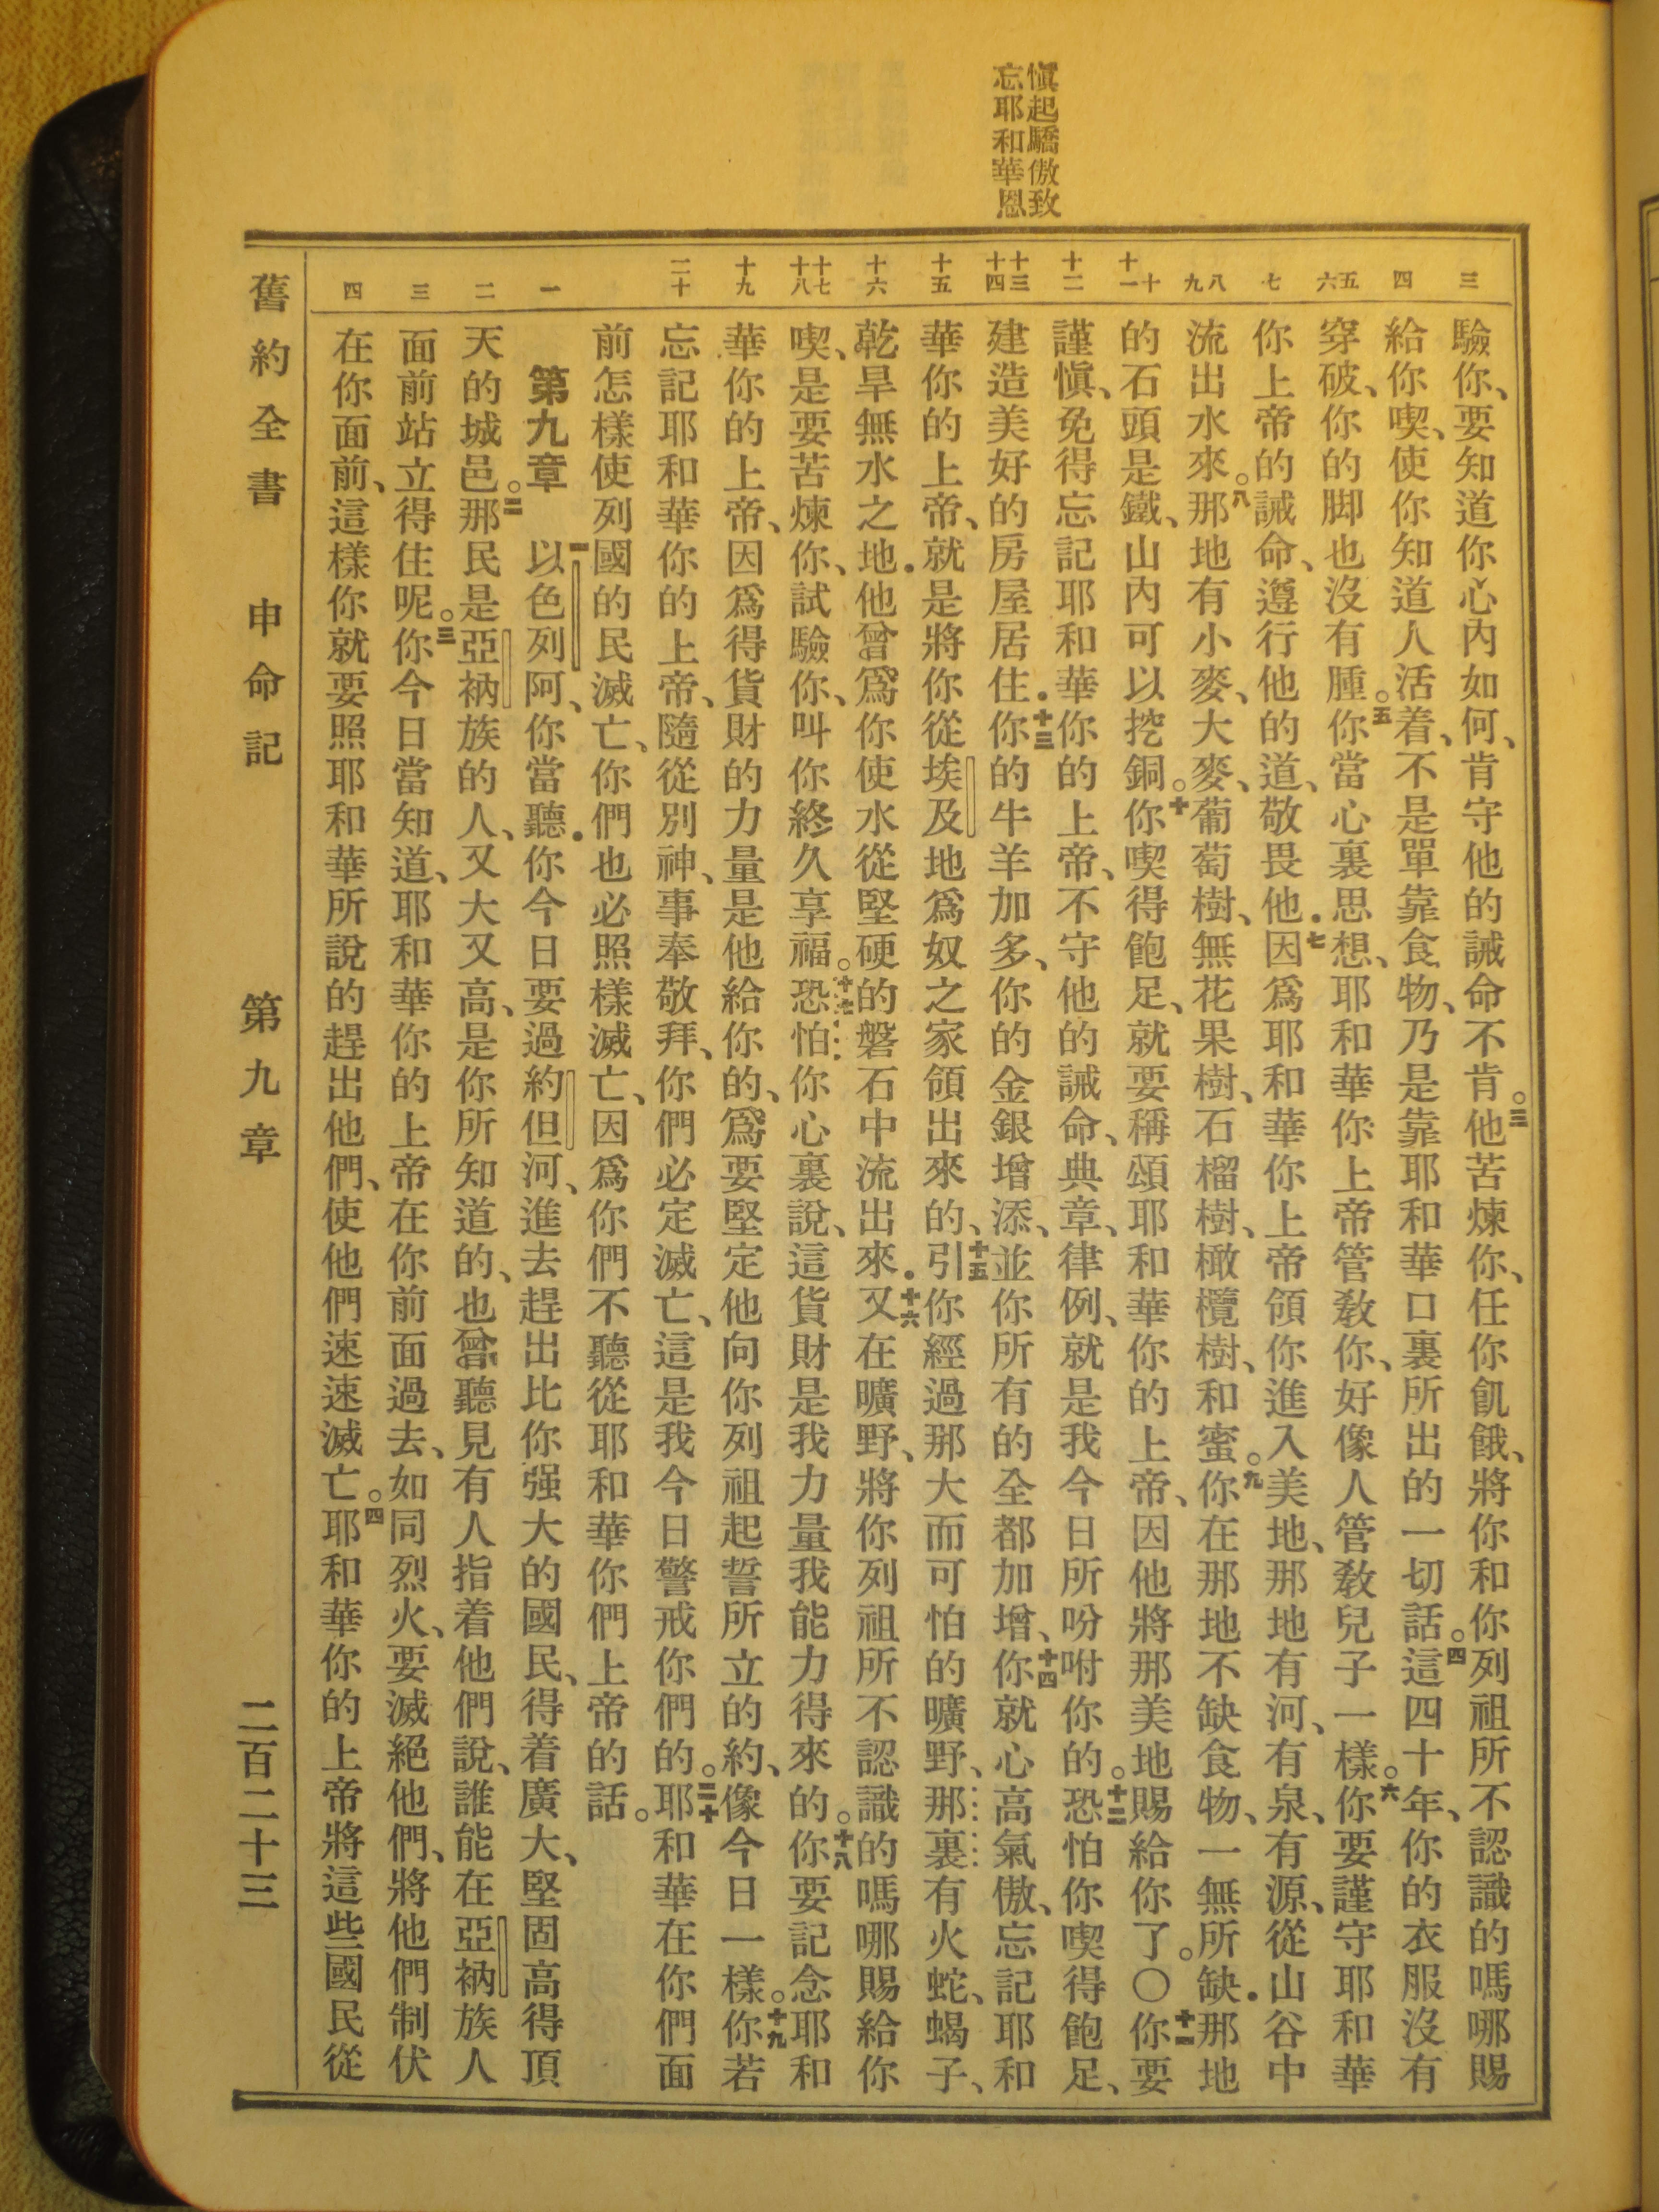 愼起驕傲致
忘耶和華恩
三
四
五
六
七
八
九
十
十一
十二
十三
十四
十五
十六
十七
十八
十九
二十
一
二
三
四
驗你、要知道你心內如何、肯守他的誡命不肯。三他苦煉你、任你飢餓、將你和你列祖所不認識的嗎哪賜
給你喫、使你知道人活着、不是單靠食物、乃是靠耶和華口裏所出的一切話。四這四十年、你的衣服沒有
穿破、你的脚也沒有腫。五你當心裏思想、耶和華你上帝管敎你、好像人管敎兒子一樣。六你要謹守耶和華
你上帝的誡命、遵行他的道、敬畏他．七因爲耶和華你上帝領你進入美地、那地有河、有泉、有源、從山谷中
流出水來。八那地有小麥、大麥、葡萄樹、無花果樹、石榴樹、橄欖樹、和蜜。九你在那地不缺食物、一無所缺．那地
的石頭是鐵、山內可以挖銅。十你喫得飽足、就要稱頌耶和華你的上帝、因他將那美地賜給你了。〇十一你要
謹愼、免得忘記耶和華你的上帝、不守他的誡命、典章、律例、就是我今日所吩咐你的。十二恐怕你喫得飽足、
建造美好的房屋居住．十三你的牛羊加多、你的金銀增添、並你所有的全都加增、十四你就心高氣傲、忘記耶和
華你的上帝、就是將你從埃及地爲奴之家領出來的、十五引你經過那大而可怕的曠野、那裏有火蛇、蝎子、
乾旱無水之地．他曾爲你使水從堅硬的磐石中流出來．十六又在曠野、將你列祖所不認識的嗎哪賜給你
喫、是要苦煉你、試驗你、叫你終久享福。十七恐怕你心裏說、這貨財是我力量我能力得來的。十八你要記念耶和
華你的上帝、因爲得貨財的力量是他給你的、爲要堅定他向你列祖起誓所立的約、像今日一樣。十九你若
忘記耶和華你的上帝、隨從別神、事奉敬拜、你們必定滅亡、這是我今日警戒你們的。二十耶和華在你們面
前怎樣使列國的民滅亡、你們也必照樣滅亡、因爲你們不聽從耶和華你們上帝的話。
第九章　一以色列阿、你當聽．你今日要過約但河、進去趕出比你强大的國民、得着廣大、堅固高得頂
天的城邑。二那民是亞衲族的人、又大又高、是你所知道的、也曾聽見有人指着他們說、誰能在亞衲族人
面前站立得住呢。三你今日當知道、耶和華你的上帝在你前面過去、如同烈火、要滅絕他們、將他們制伏
在你面前、這樣你就要照耶和華所說的趕出他們、使他們速速滅亡。四耶和華你的上帝將這些國民從
舊約全書　申命記　第九章　二百二十三